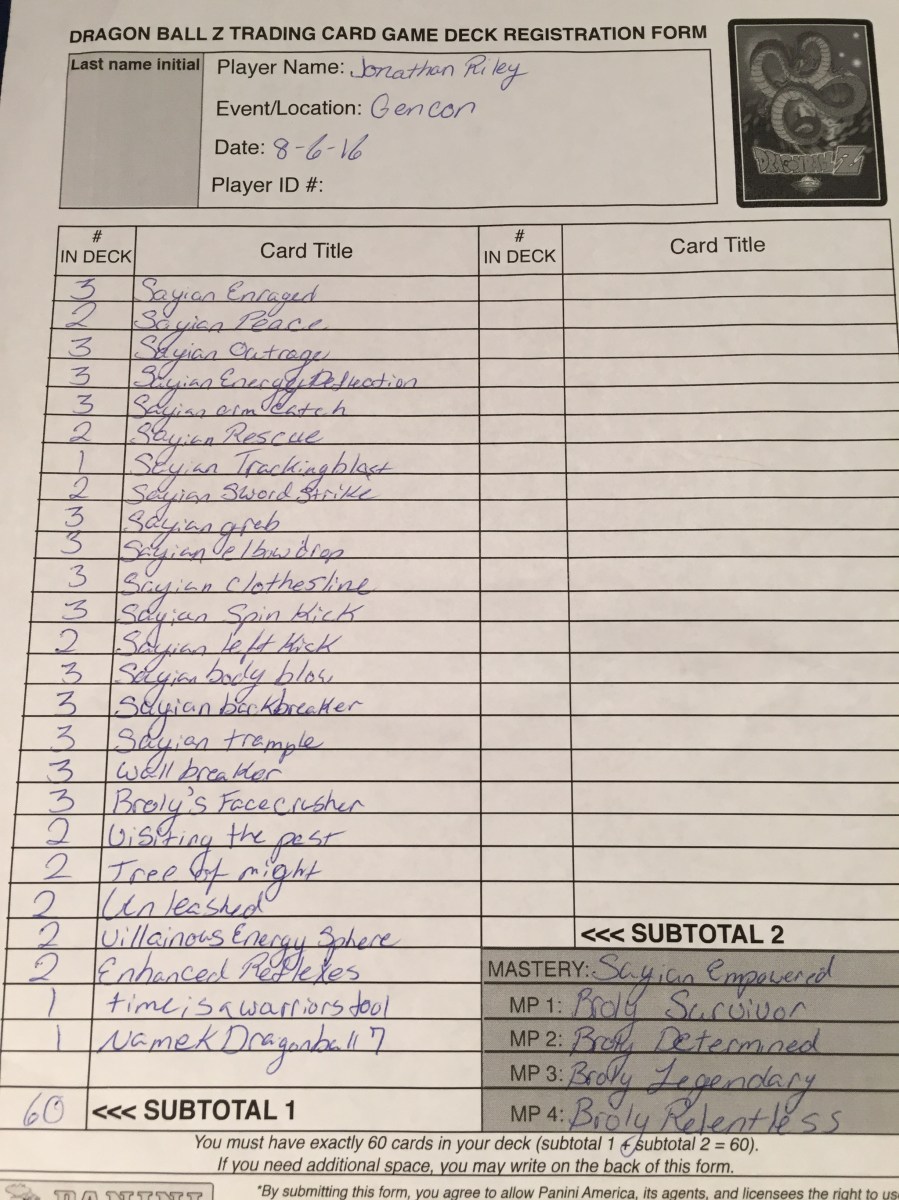 DRAGON BALL Z TRADING CARD GAME DECK REGISTRATION FORM
Last name initial
Player Name: Jonathan Riley
Event/Location: Gencon
Date: 8-6-16
Player ID #:
DRAGONBALL Z
# IN DECK Card Title # IN DECK Card Title
3 Sayian Enraged
2 Sayian Peace
3 Sayian Outrage
3 Sayian Energy Deflection
3 Sayian arm catch
2 Sayian Rescue
1 Sayian Trackingblast
2 Sayian Sword Strike
3 Sayian grab
3 Sayian elbowdrop
3 Sayian Clothesline
3 Sayian Spin Kick
2 Sayian left Kick
3 Sayian body blow
3 Sayian backbreaker
3 Sayian trample
3 Wall breaker
3 Broly's Facecrusher
2 Visiting the past
2 Tree of might
2 Unleashed
2 Villainous Energy Sphere
2 Enhanced Reflexes
1 time is a warriors tool
1 Namek Dragonball 7
60 <<< SUBTOTAL 1
<<< SUBTOTAL 2
MASTERY: Sayian Empowered
MP 1: Broly Survivor
MP 2: Broly Determined
MP 3: Broly Legendary
MP 4: Broly Relentless
You must have exactly 60 cards in your deck (subtotal 1 + subtotal 2 = 60).
If you need additional space, you may write on the back of this form.
PANINI
*By submitting this form, you agree to allow Panini America, its agents, and licensees the right to use